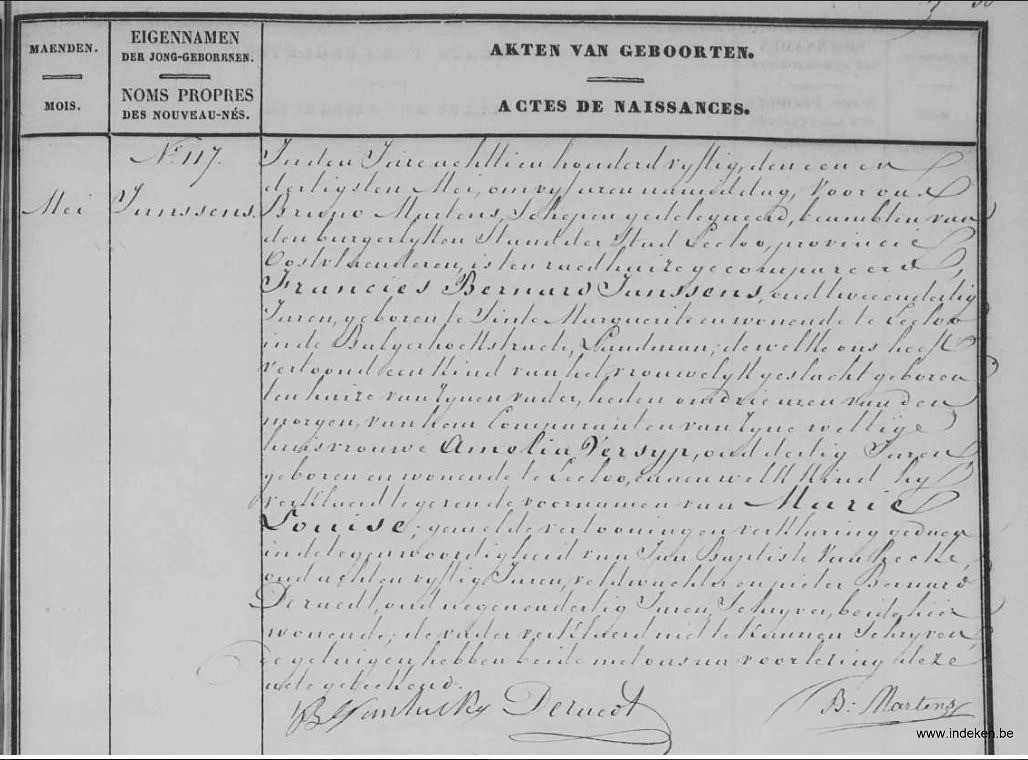 MAENDEN.
MOIS.
EIGENNAMEN
DER JONG-GEBORENEN.
NOMS PROPRES
DES NOUVEAU-NÉS.
AKTEN VAN GEBOORTEN.
ACTES DE NAISSANCES.
N° 117.
Mei
Janssens.
In den Jare achttien honderd vyftig, den een en
dertigsten Mei, om vyf uren namiddag, Voor ons
Bruno Martens, Schepen gedelegueerd, beambten van
den burgerlyken Stand der Stad Eecloo, provincie
Oostvlaenderen, is ten raedhuize gecompareerd
Francies Bernard Janssens, oud twee en dertig
Jaren, geboren te Sinte Marguerite en wonende te Eecloo
in de Balgerhoekstraet, Landman; dewelke ons heeft
vertoond een Kind van het vrouwelyk geslacht geboren
ten huize van zynen vader, heden om drie uren van den
morgen, van hem Comparant en van zyne wettige
huisvrouwe Amelia Versyp, oud dertig Jaren
geboren en wonende te Eecloo, aen en welk Kind hy
verklaerd te geven de voornamen van Marie
Louise; gemelde vertooning en verklaring gedaen
in de tegenwoordigheid van Jan Baptiste Van hecke,
oud acht en vyftig Jaren, veldwachter en pieter Bernard
Deraedt, oud negen en dertig Jaren, Schryver, beide hier
wonende; de vader verklaerd niet te Kunnen Schryven,
de getuigen hebben beide met ons na voorlezing deze
akte geteekend.
Deraedt
B: Martens
www.indeken.be